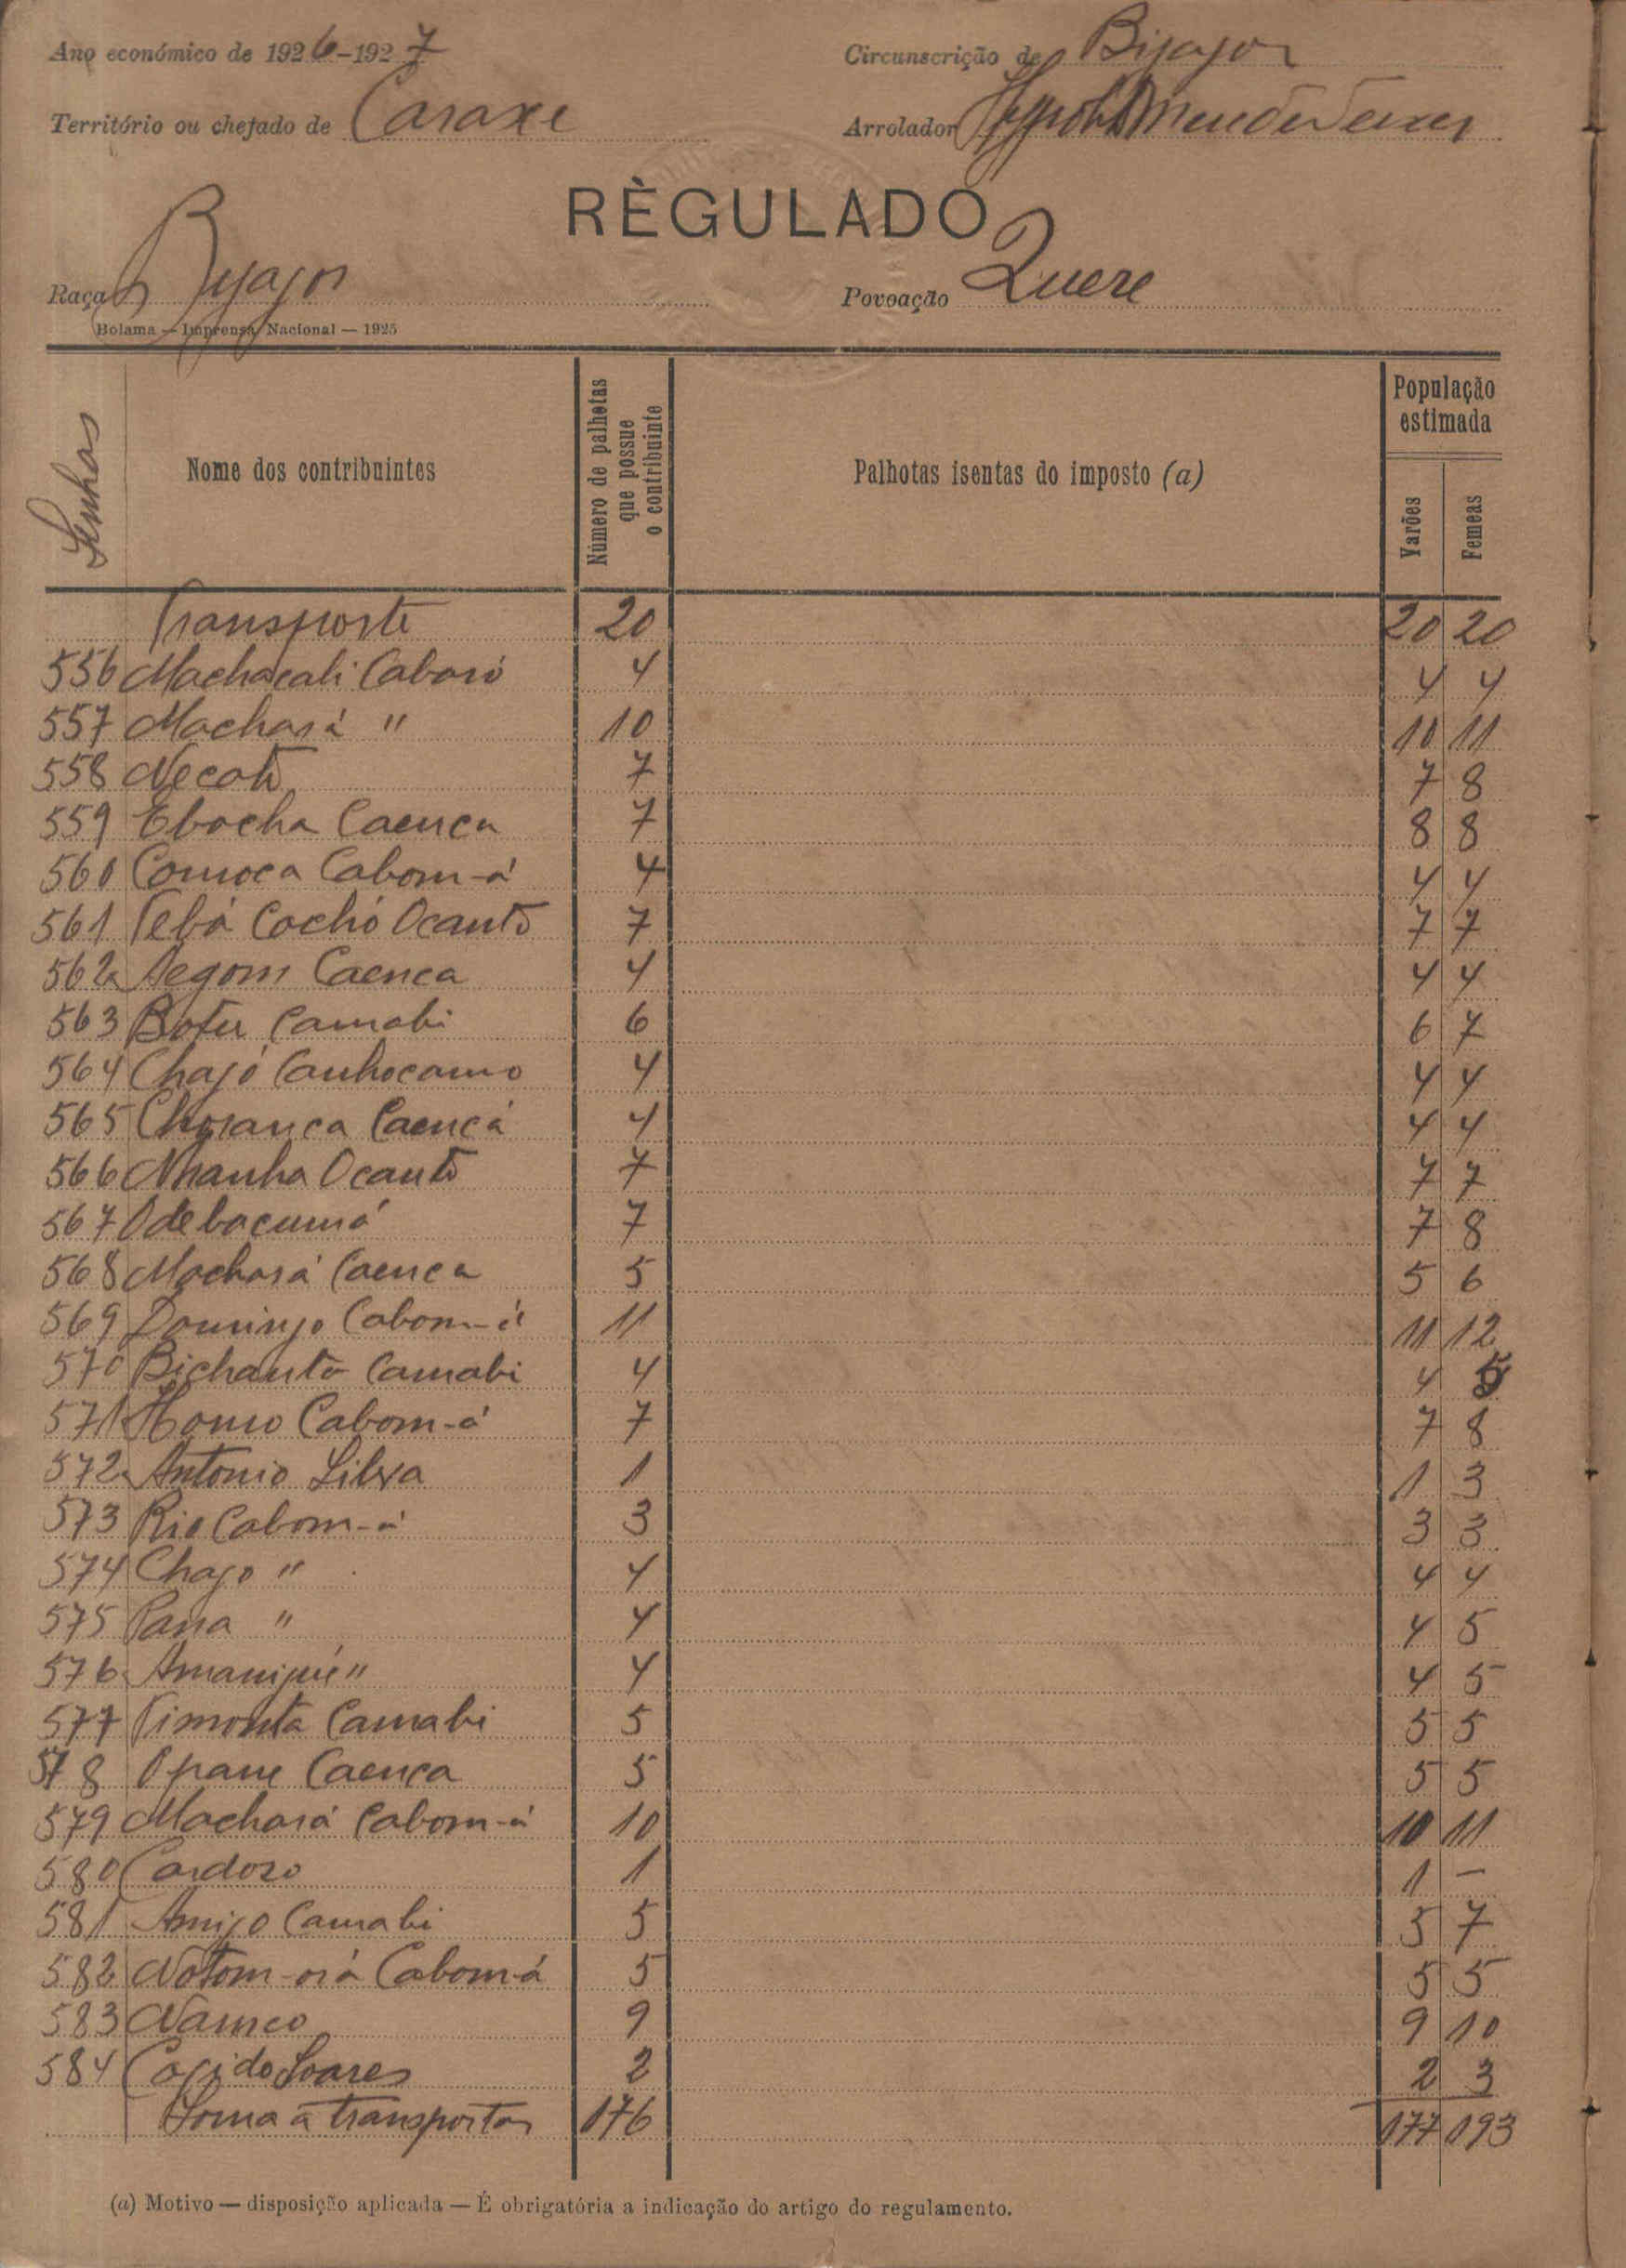 Ano económico de 1926-1927
Circunscrição de Bijagos
Território ou chefado de Caraxe
Arrolador
RÈGULADO
Raça Bijagos
Povoação Quere
Bolama — Imprensa Nacional — 1925
Senhas
Nome dos contribuintes
Número de palhotas que possue o contribuinte
Palhotas isentas do imposto (a)
População estimada
Varões
Femeas
Transporte 20 20 20
556 Machacali Caboró 4 4 4
557 Machará " 10 10 11
558 Necoto 7 7 8
559 Ebocha Caenca 7 8 8
560 Comoca Cabom-á 4 4 4
561 Tebá Cochó Ocanto 7 7 7
562 Segom Caenca 4 4 4
563 Botu Camabi 6 6 7
564 Chajó Canhocamo 4 4 4
565 Choranca Caencá 4 4 4
566 Nhanha Ocanto 7 7 7
567 Odebacumá 7 7 8
568 Machará Caenca 5 5 6
569 Domingo Cabom-á 11 11 12
570 Bichauto Camabi 4 4 5
571 Homo Cabom-á 7 7 8
572 Antonio Silva 1 1 3
573 Rio Cabom-á 3 3 3
574 Chago " 4 4 4
575 Pana " 4 4 5
576 " 4 4 5
577 Timonta Camabi 5 5 5
578 Opane Caenca 5 5 5
579 Machará Cabom-á 10 10 11
580 Cardoso 1 1 —
581 Amigo Camabi 5 5 7
582 Notom-oiá Cabom-á 5 5 5
583 Nameo 9 9 10
584 Soares 2 2 3
Soma a transportar 176 177 193
(a) Motivo — disposição aplicada — É obrigatória a indicação do artigo do regulamento.